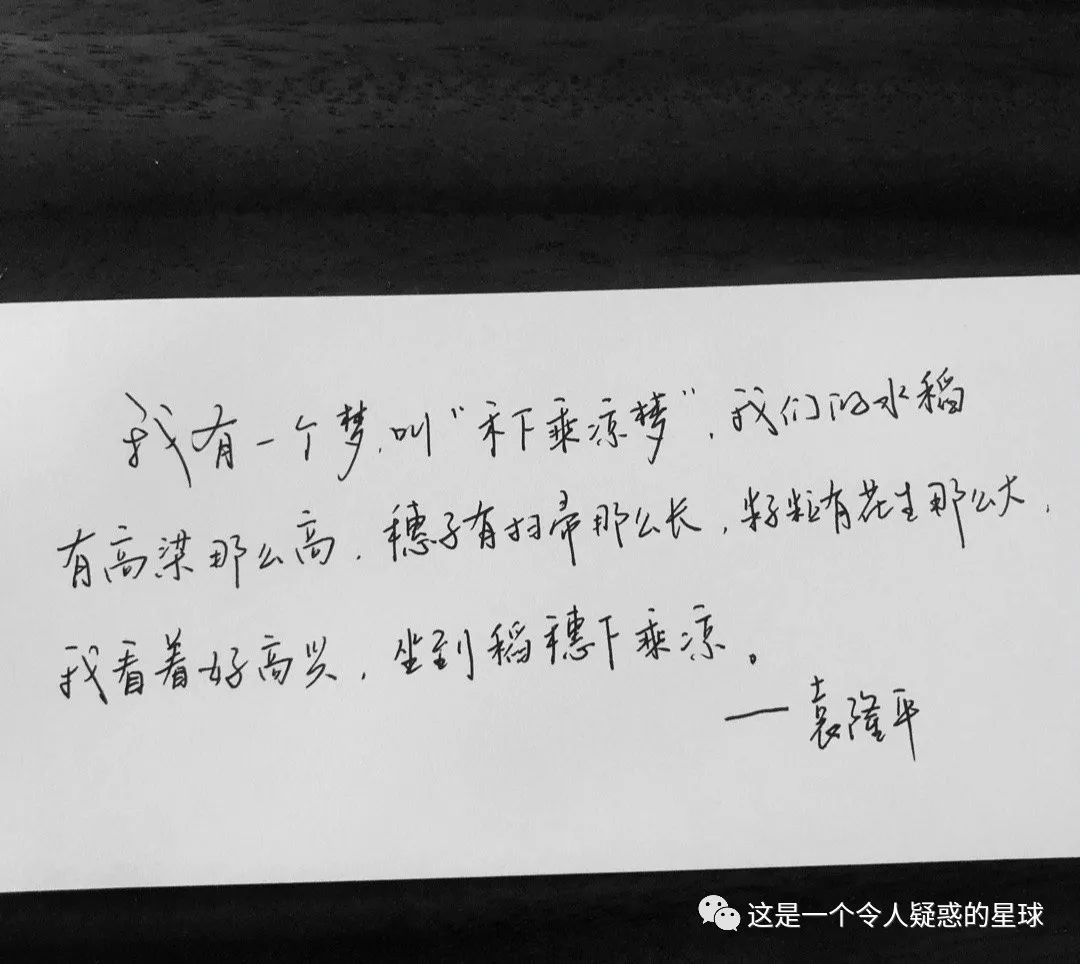 我有一个梦,叫“禾下乘凉梦”,我们的水稻
有高梁那么高,穗子有扫帚那么长,籽粒有花生那么大,
我看着好高兴,坐到稻穗下乘凉。
——袁隆平
这是一个令人疑惑的星球